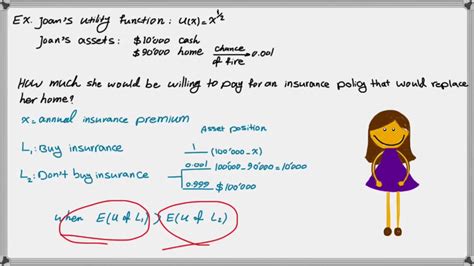 Ex. Joan's utility function: U(x)=x^1/2
Joan's assets: $10'000 cash
$90'000 home chance of fire 0.001
How much she would be willing to pay for an insurance policy that would replace
her home?
x = annual insurance premium
Asset position
L1: Buy insurrance 1 (100'000-x)
L2: Don't buy insurance 0.001 100'000-90'000=10'000
0.999 $100'000
when E(U of L1) > E(U of L2)